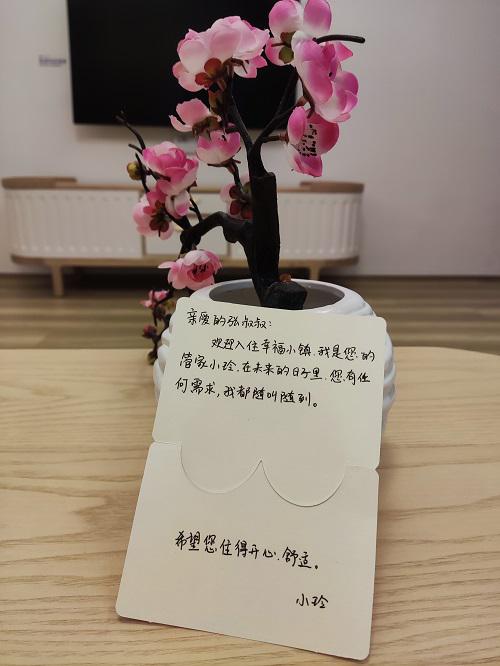 亲爱的张叔叔:
欢迎入住幸福小镇.我是您的
管家小玲.在未来的日子里.您有任
何需求,我都随叫随到。
希望您住得开心.舒适。
小玲